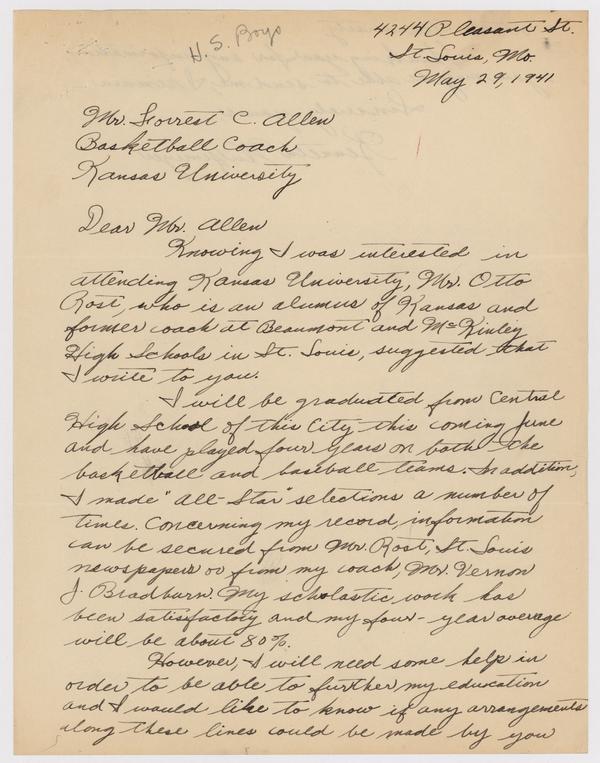 H. S. Boys
4244 Pleasant St.
St. Louis, Mo.
May 29, 1941
Mr. Forrest C. Allen
Basketball Coach
Kansas University
Dear Mr. Allen
Knowing I was interested in
attending Kansas University, Mr. Otto
Rost, who is an alumus of Kansas and
former coach at Beaumont and McKinley
High Schools in St. Louis, suggested that
I write to you.
I will be graduated from Central
High School of this City this coming June
and have played four years on both the
basketball and baseball teams. In addition,
I made "All-Star" selections a number of
times. Concerning my record, information
can be secured from Mr. Rost, St. Louis
newspapers or from my coach, Mr. Vernon
J. Bradburn. My scholastic work has
been satisfactory and my four-year average
will be about 80%.
However, I will need some help in
order to be able to further my education
and I would like to know if any arrangements
along these lines could be made by you